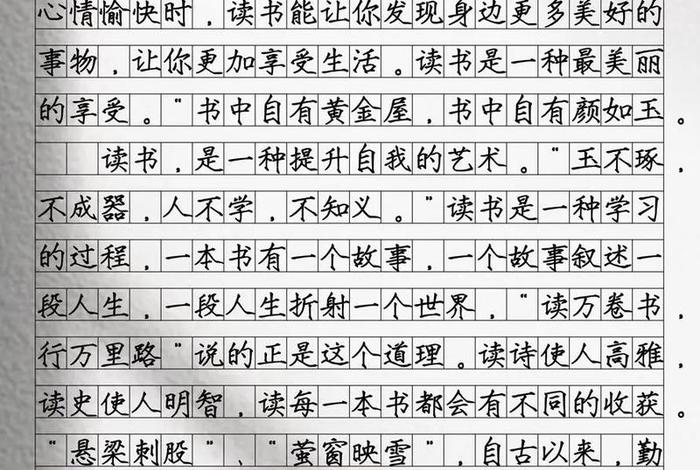 心情愉快时，读书能让你发现身边更多美好的
事物，让你更加享受生活。读书是一种最美丽
的享受。"书中自有黄金屋，书中自有颜如玉。
读书，是一种提升自我的艺术。"玉不琢，
不成器，人不学，不知义。"读书是一种学习
的过程，一本书有一个故事，一个故事叙述一
段人生，一段人生折射一个世界，"读万卷书，
行万里路"说的正是这个道理。读诗使人高雅，
读史使人明智，读每一本书都会有不同的收获。
"悬梁刺股"、"萤窗映雪"，自古以来，勤